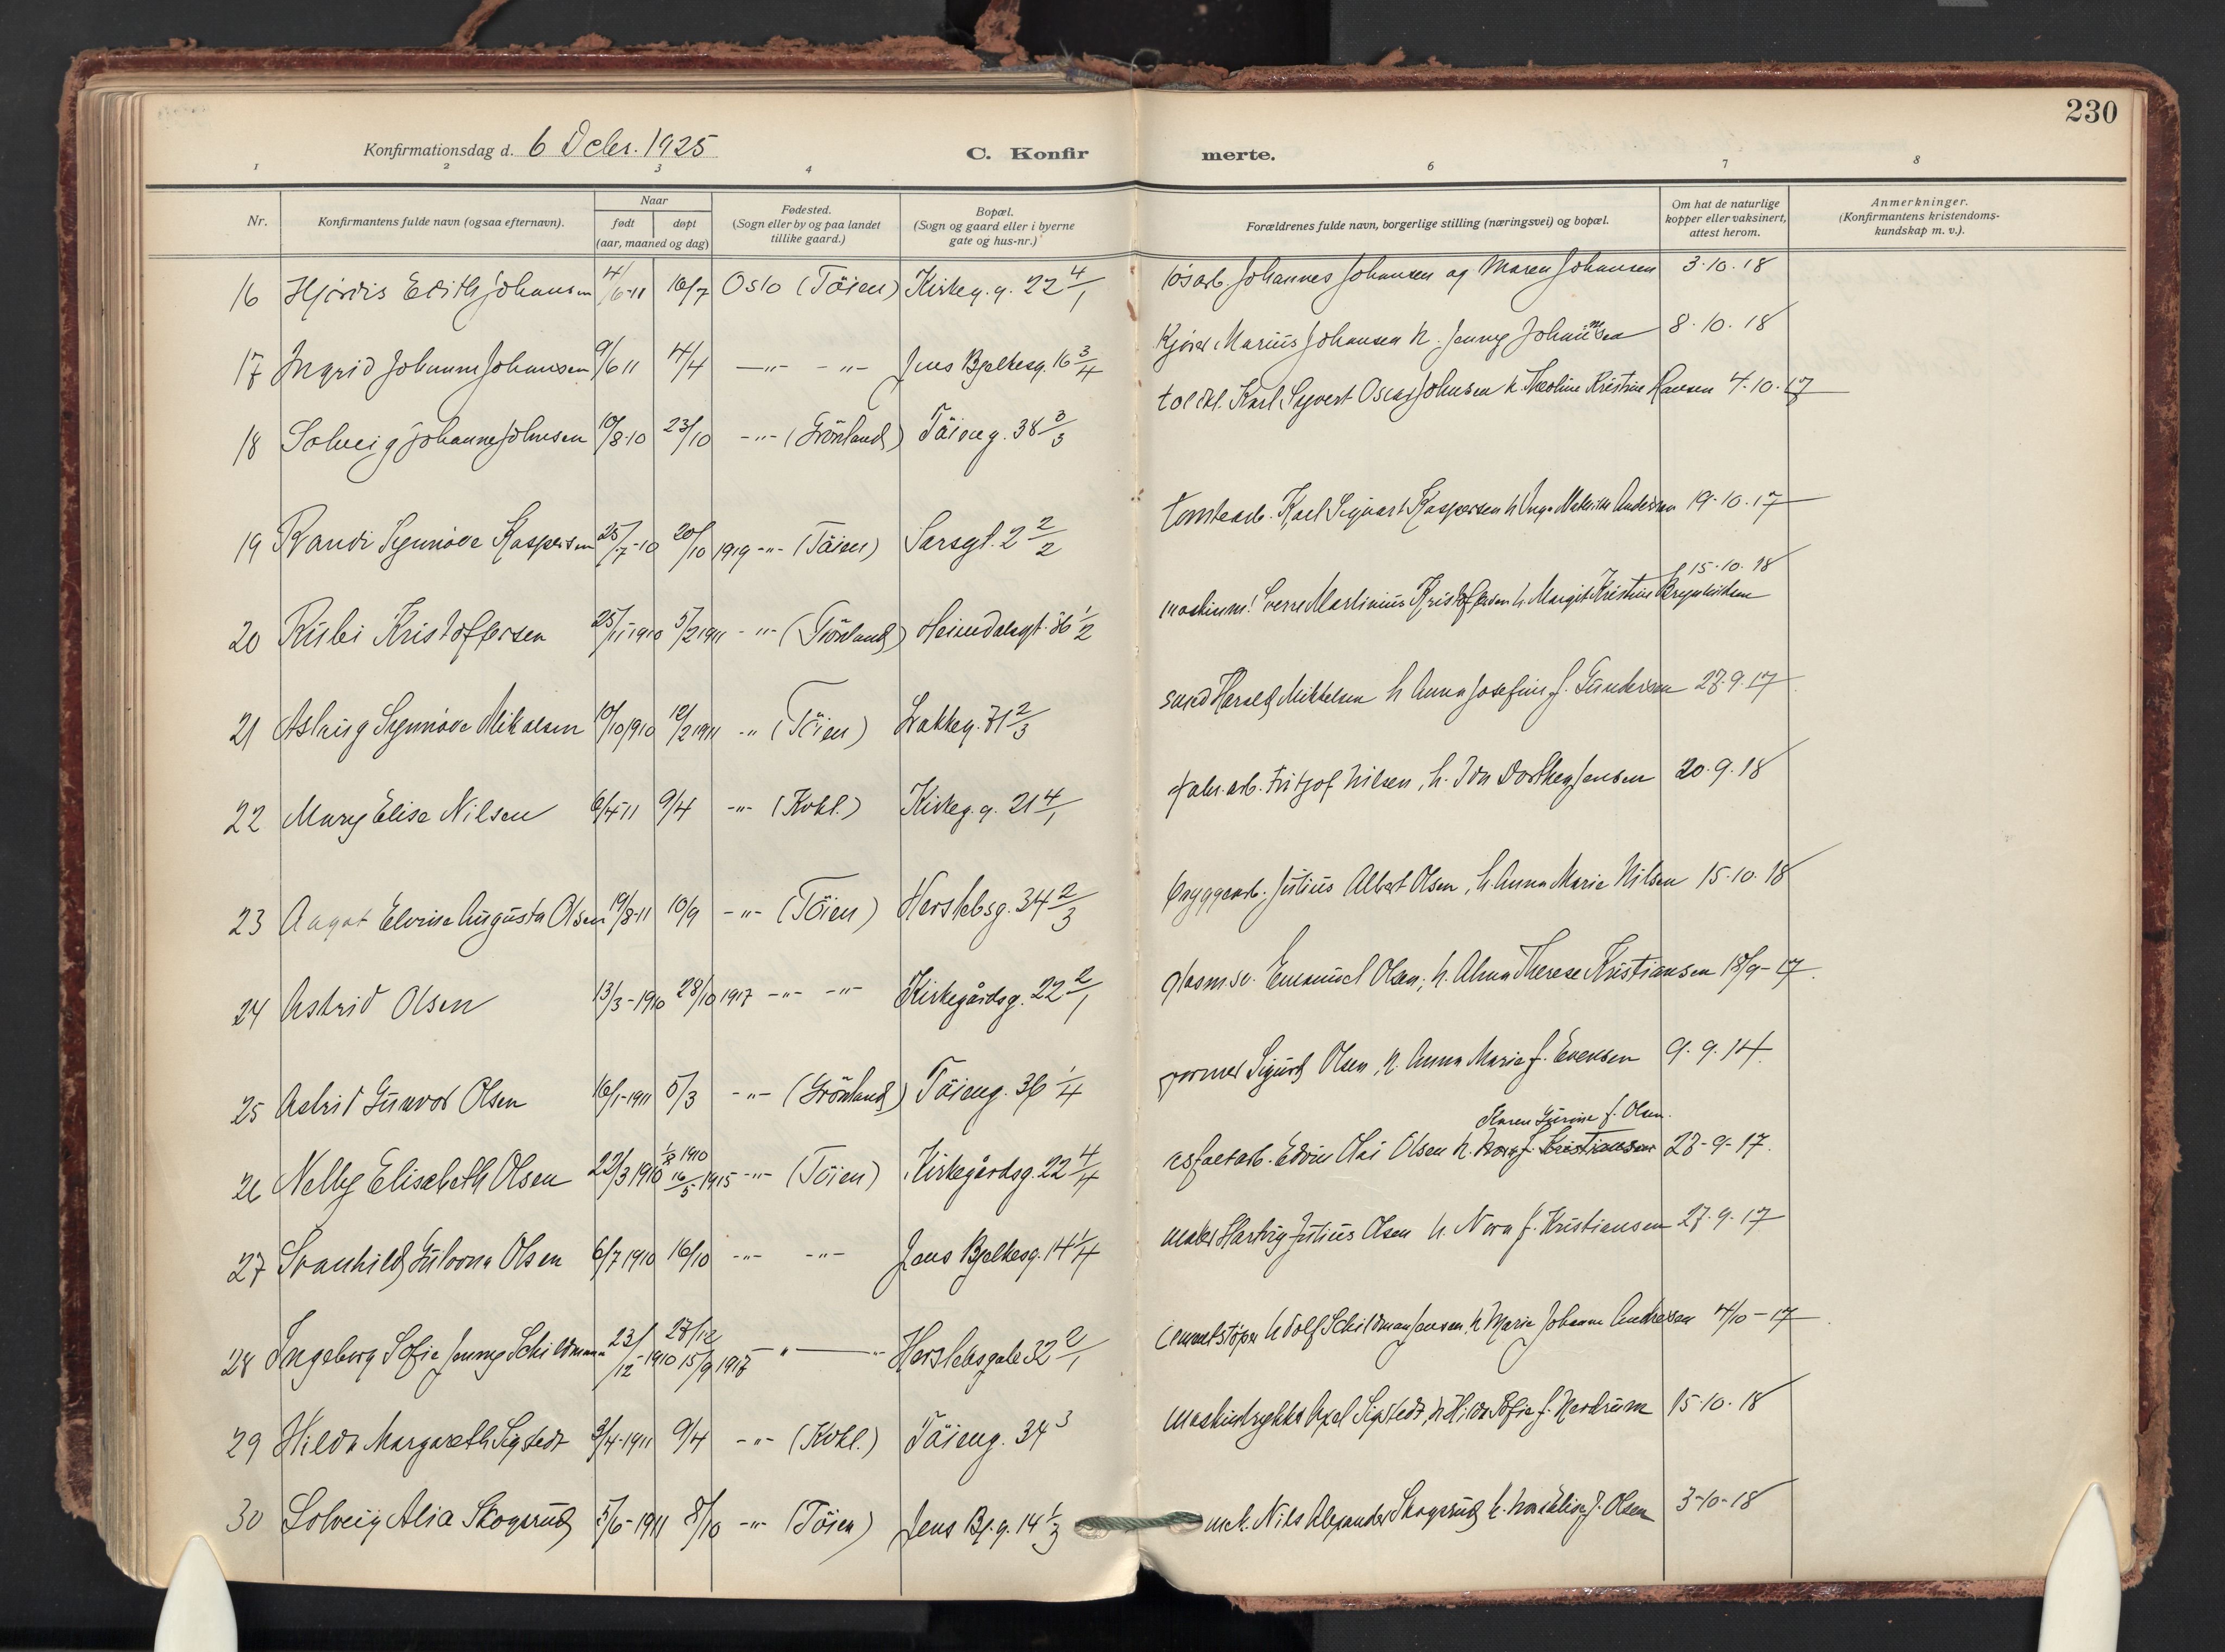 230
Konfirmationsdag d. 6 Decbr. 1925
C. Konfirmerte.
1 2 3 4 6 7 8
Nr. Konfirmantens fulde navn (ogsaa efternavn). Naar født døpt (aar, maaned og dag) Fødested. (Sogn eller by og paa landet tillike gaard.) Bopæl. (Sogn og gaard eller i byerne gate og hus-nr.) Forældrenes fulde navn, borgerlige stilling (næringsvei) og bopæl. Om hat de naturlige kopper eller vaksinert, attest herom. Anmerkninger. (Konfirmantens kristendoms-kundskap m. v.).
16 Hjördis Edith Johansen 4/6-11 16/7 Oslo (Töien) Kirkeg.g. 22 4/1 løsarb. Johannes Johansen og Maren Johansen 3.10.18
17 Ingrid Johanne Johansen 9/6 11 17/4 -"- -"- Jens Bjelkesg. 16 3/4 Kjører Marius Johansen h. Jenny Johansen 8.10.18
18 Solveig Johanne Johnsen 10/8-10 23/10 -"- (Grönland) Töieng. 38 3/3 Karl Sigvert Oscar Johnsen h. Theoline Kristine Hansen 4.10.17
19 Randi Synnöve Kaspersen 25/7-10 20/10 1919 -"- (Töien) Sarsgt. 2 2/2 tomtearb. Karl Sigvart Kaspersen h Inga Mathilde Andersen 19-10.17
20 Rubi Kristoffersen 25/11 1910 5/2 1911 -"- (Grönland) Heimdalsgt. 36 1/2 maskinm. Sverre Martinius Kristoffersen h. Margit Kristine Brynildsen 15.10.18
21 Aslaug Synnöve Mikalsen 10/10 1910 12/2 1911 -"- (Töien) Lakkeg. 71 2/3 smed Harald Mikkelsen h Anna Josefine f. Gundersen 27.9.17
22 Mary Elise Nilsen 6/4-11 9/4 -"- (Kvkl.) Kirkeg.g. 21 4/1 fabr.arb. Fritjof Nilsen, h. Ida Dorthea Jensen 20.9.18
23 Aagot Elvine Augusta Olsen 19/8-11 10/9 -"- (Töien) Herslebsg. 34 2/3 bryggearb. Julius Albert Olsen, h. Anna Marie Nilsen 15.10.18
24 Astrid Olsen 13/3-1910 28/10 1917 -"- -"- Kirkegårdsg. 22 2/1 glasm.sv. Emanuel Olsen, h. Alma Therese Kristiansen 18/9-17.
25 Astrid Gunvor Olsen 16/1-1911 5/3 -"- (Grönland) Töieng. 36 1/4 former Sigurd Olsen, h. Anna Marie f. Evensen 9.9.14.
26 Nelly Elisabeth Olsen 22/3 1910 1/8 1910 16/5 1915 -"- (Töien) Kirkegårdsg. 22 4/4 asfaltarb. Edvin Olai Olsen h. Nora f. Kristiansen Karen Gurine f. Olsen. 28-9-17.
27 Svanhild Gulovna Olsen 6/7 1910 16/10 -"- -"- Jens Bjelkesg. 14 1/4 maler Hartvig Julius Olsen h. Nora f. Kristiansen 27.9.17
28 Ingeborg Sofie Jenny Schildman 23/12-1910 27/12 15/9 1917 " -- " Herslebsgate 32 2/1 cementstöper Adolf Schildman Jensen, h Marie Johanne Andresen 4/10-17.
29 Hilda Margareth Sigstedt 3/4-1911 9/4 -"- (Kvkl.) Töieng. 34 3 maskintrykker Axel Sigstedt, h Hilda Sofie f. Nordrum 15.10.18
30 Solveig Alia Skogsrud 5/6-1911 8/10 -"- (Töien) Jens Bj.g. 14 1/3 mek. Nils Alexander Skogsrud h. Nora Elise f. Olsen 3-10-18